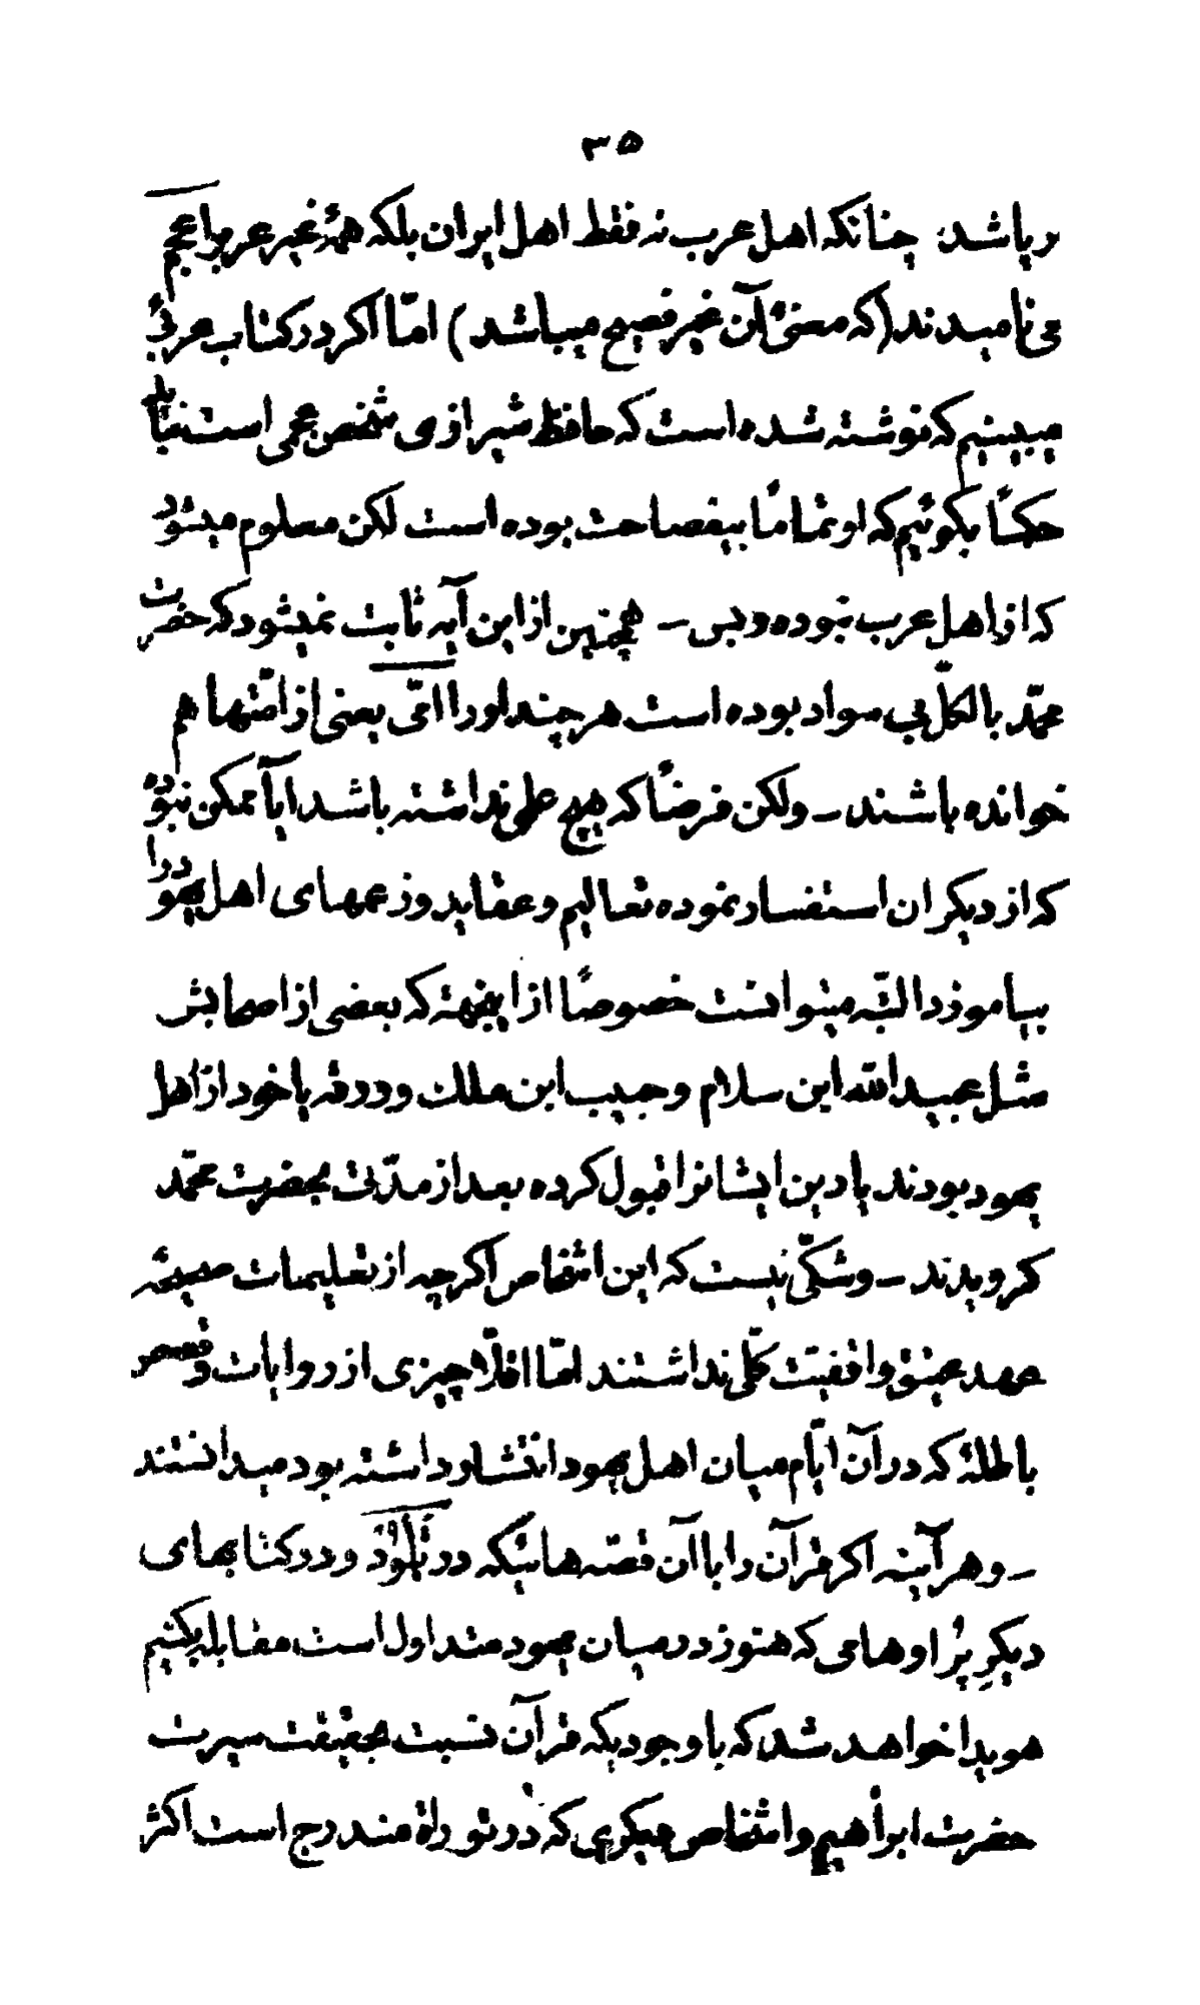 ۳۵
رباشد. چنانکه اهل عرب نه فقط اهل ایران بلکه همۀ غیر عرب را عجم
می نامیدند (که معنیٔ آن غیر فصیح میباشد) امّا اگر در کتاب عربیٔ
میبینیم که نوشته شده است که حافظ شیرازی شخص عجمی است نباید
حکمًا بگوئیم که او تمامًا بیفصاحت بوده است لکن معلوم میشود
که از اهل عرب نبوده و بس – همچنین از این آیه ثابت نمیشود که حضرت
محمّد بالکلّ بی سواد بوده است هر چند او را امّی یعنی از امّتها هم
خوانده باشند – ولکن فرضًا که هیچ علمی نداشته باشد ایا ممکن نبوده
که از دیگران استفسار نموده تعالیم و عقاید و زعمهای اهل یهود را
بیاموزد البتّه میتوانست خصوصًا از اینجهة که بعضی از اصحابش
مثل عبید الله این سلام و حبیب ابن ملک و ورقه یا خود از اهل
یهود بودند یا دین ایشانرا قبول کرده بعد از مدّتی بحضرت محمّد
گرویدند – و شکّی نیست که این اشخاص اگرچه از تعلیمات صحیحۀ
عهد عتیق واقفیّت کلّی نداشتند امّا اقلّا چیزی از روایات و قصص
باطلۀ که در آن ایّام میان اهل یهود انتشار داشته بود میدانستند
– و هر آینه اگر قرآن را با آن قصّه هائیکه در تلمود و در کتابهای
دیگرِ پُر اوهامی که هنوز در میان یهود متداول است مقابله بکنیم
هویدا خواهد شد که با وجودیکه قرآن نسبت بحقیقت سیرت
حضرت ابراهیم و اشخاص دیگری که در توراة مندرج است اکثر